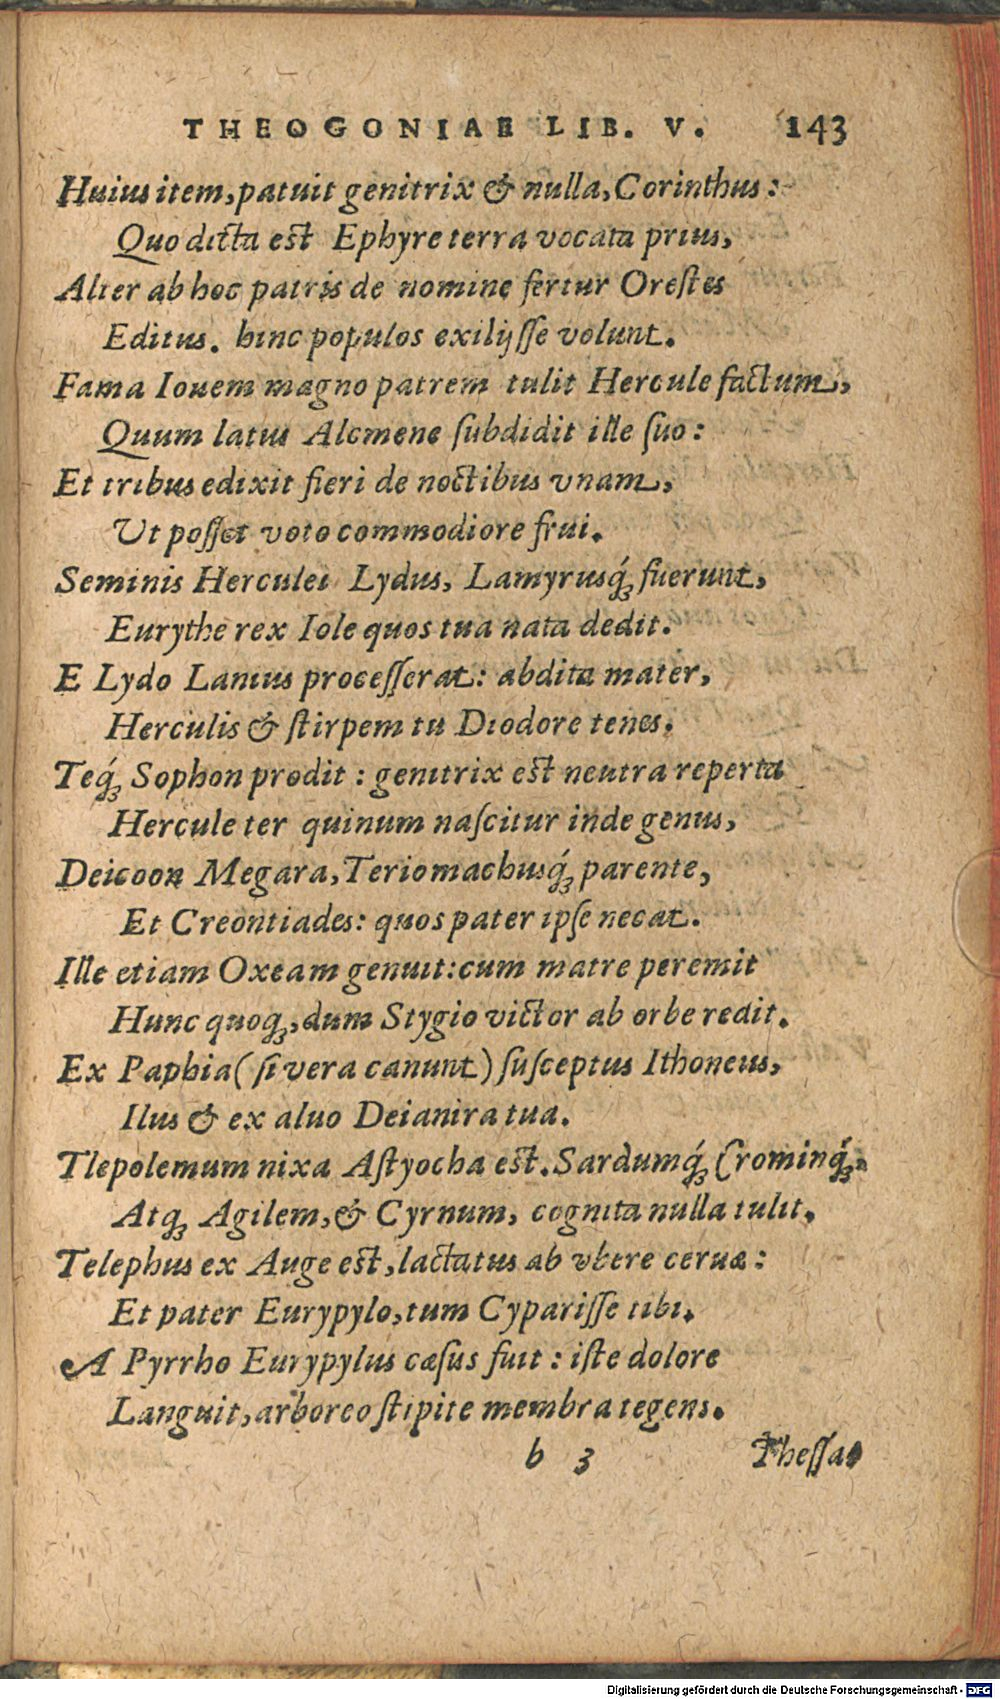 THEOGONIAE LIB. V. 143
Huius item, patuit genitrix & nulla, Corinthus:
Quo dicta est Ephyre terra vocata prius,
Alter ab hoc patris de nomine fertur Orestes
Editus. hinc populos exilijsse volunt.
Fama Iouem magno patrem tulit Hercule factum,
Quum latus Alcmene subdidit ille suo:
Et tribus edixit fieri de noctibus vnam,
Ut posset voto commodiore frui.
Seminis Herculei Lydus, Lamyrusq́; fuerunt,
Eurythe rex Iole quos tua nata dedit.
E Lydo Lanius processerat: abdita mater,
Herculis & stirpem tu Diodore tenes.
Teq́; Sophon prodit: genitrix est neutra reperta
Hercule ter quinum nascitur inde genus,
Deicoon Megara, Teriomachusq́; parente,
Et Creontiades: quos pater ipse necat.
Ille etiam Oxeam genuit: cum matre peremit
Hunc quoq;, dum Stygio victor ab orbe redit.
Ex Paphia (si vera canunt) susceptus Ithoneus,
Ilus & ex aluo Deianira tua.
Tlepolemum nixa Astyocha est. Sardumq́; Crominq́;,
Atq; Agilem, & Cyrnum, cognita nulla tulit.
Telephus ex Auge est, lactatus ab vbere ceruæ:
Et pater Eurypylo, tum Cyparisse tibi.
A Pyrrho Eurypylus cæsus fuit: iste dolore
Languit, arboreo stipite membra tegens.
b 3 Thessa-
Digitalisierung gefördert durch die Deutsche Forschungsgemeinschaft - DFG